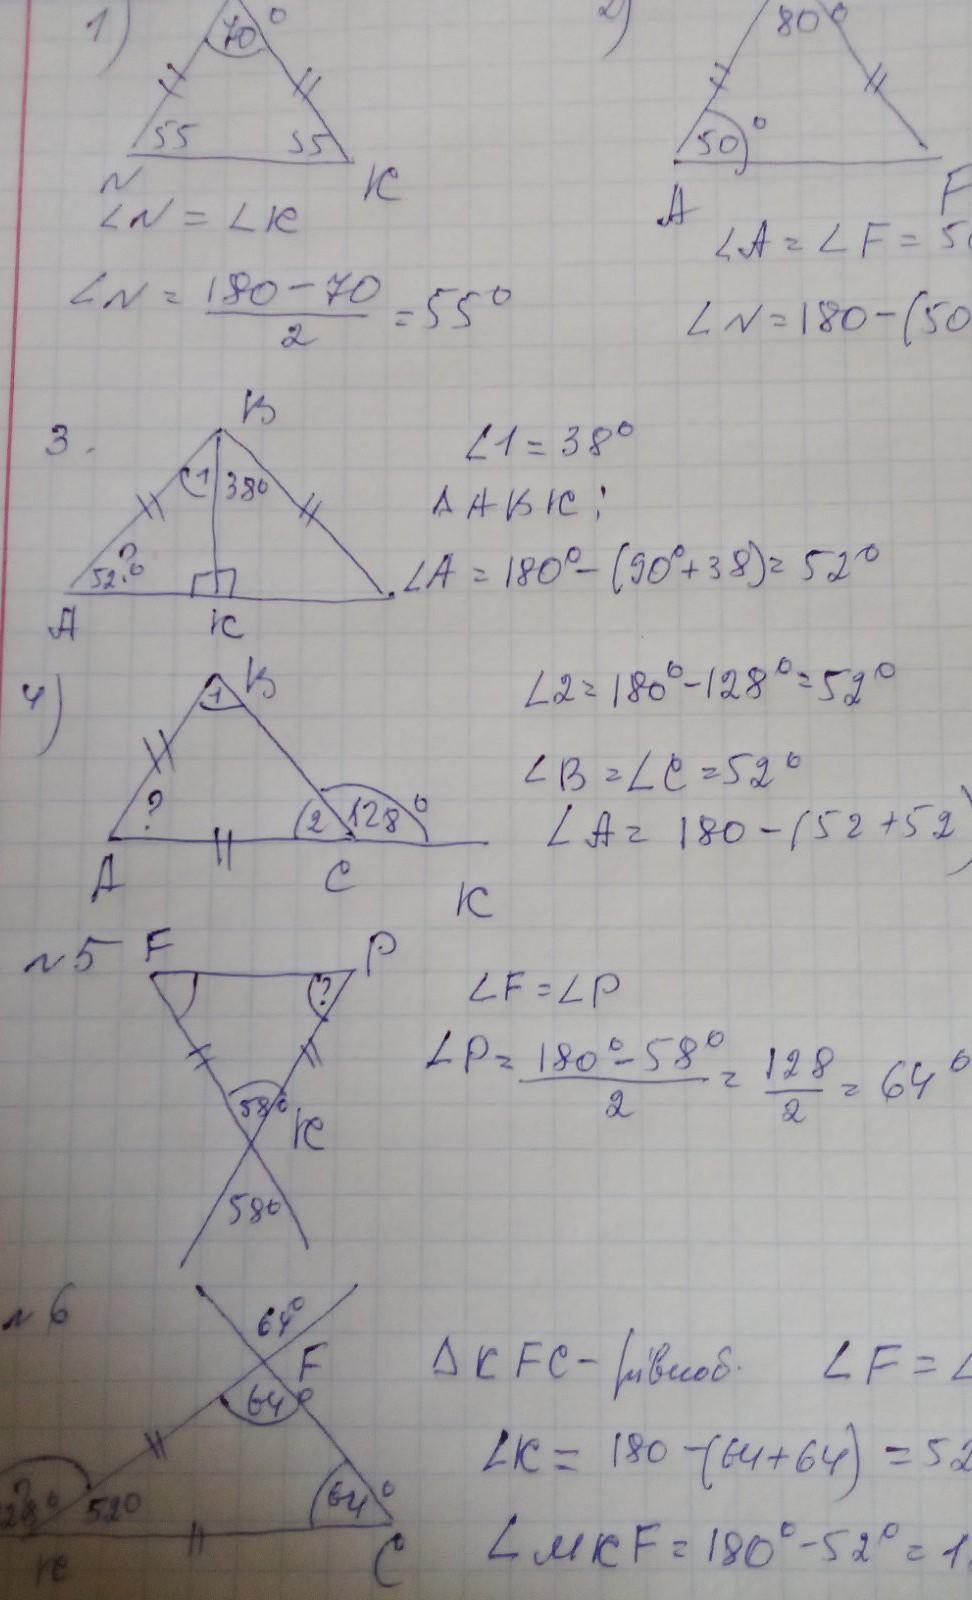 1)
70°
55
55
N
K
∠N = ∠K
∠N = (180 - 70)/2 = 55°
2)
80°
50°
A
F
∠A = ∠F = 50
∠N = 180 - (50
3.
B
1
38°
?
52°
A
K
∠1 = 38°
Δ ABK:
∠A = 180° - (90° + 38) = 52°
4)
B
1
?
2
128°
A
C
K
∠2 = 180° - 128° = 52°
∠B = ∠C = 52°
∠A = 180 - (52 + 52)
N5
F
P
?
58°
K
58°
∠F = ∠P
∠P = (180° - 58°)/2 = 128/2 = 64°
N6
64°
F
64°
?
28°
52°
64°
K
C
Δ KFC - рівноб.
∠F = ∠
∠K = 180 - (64 + 64) = 52
∠MKF = 180° - 52° = 1